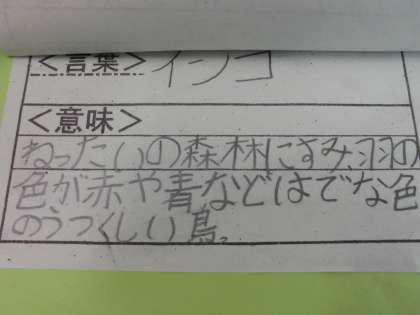 <言葉> インコ
<意味>
ねったいの森林にすみ、羽の
色が赤や青などはでな色
のうつくしい鳥。